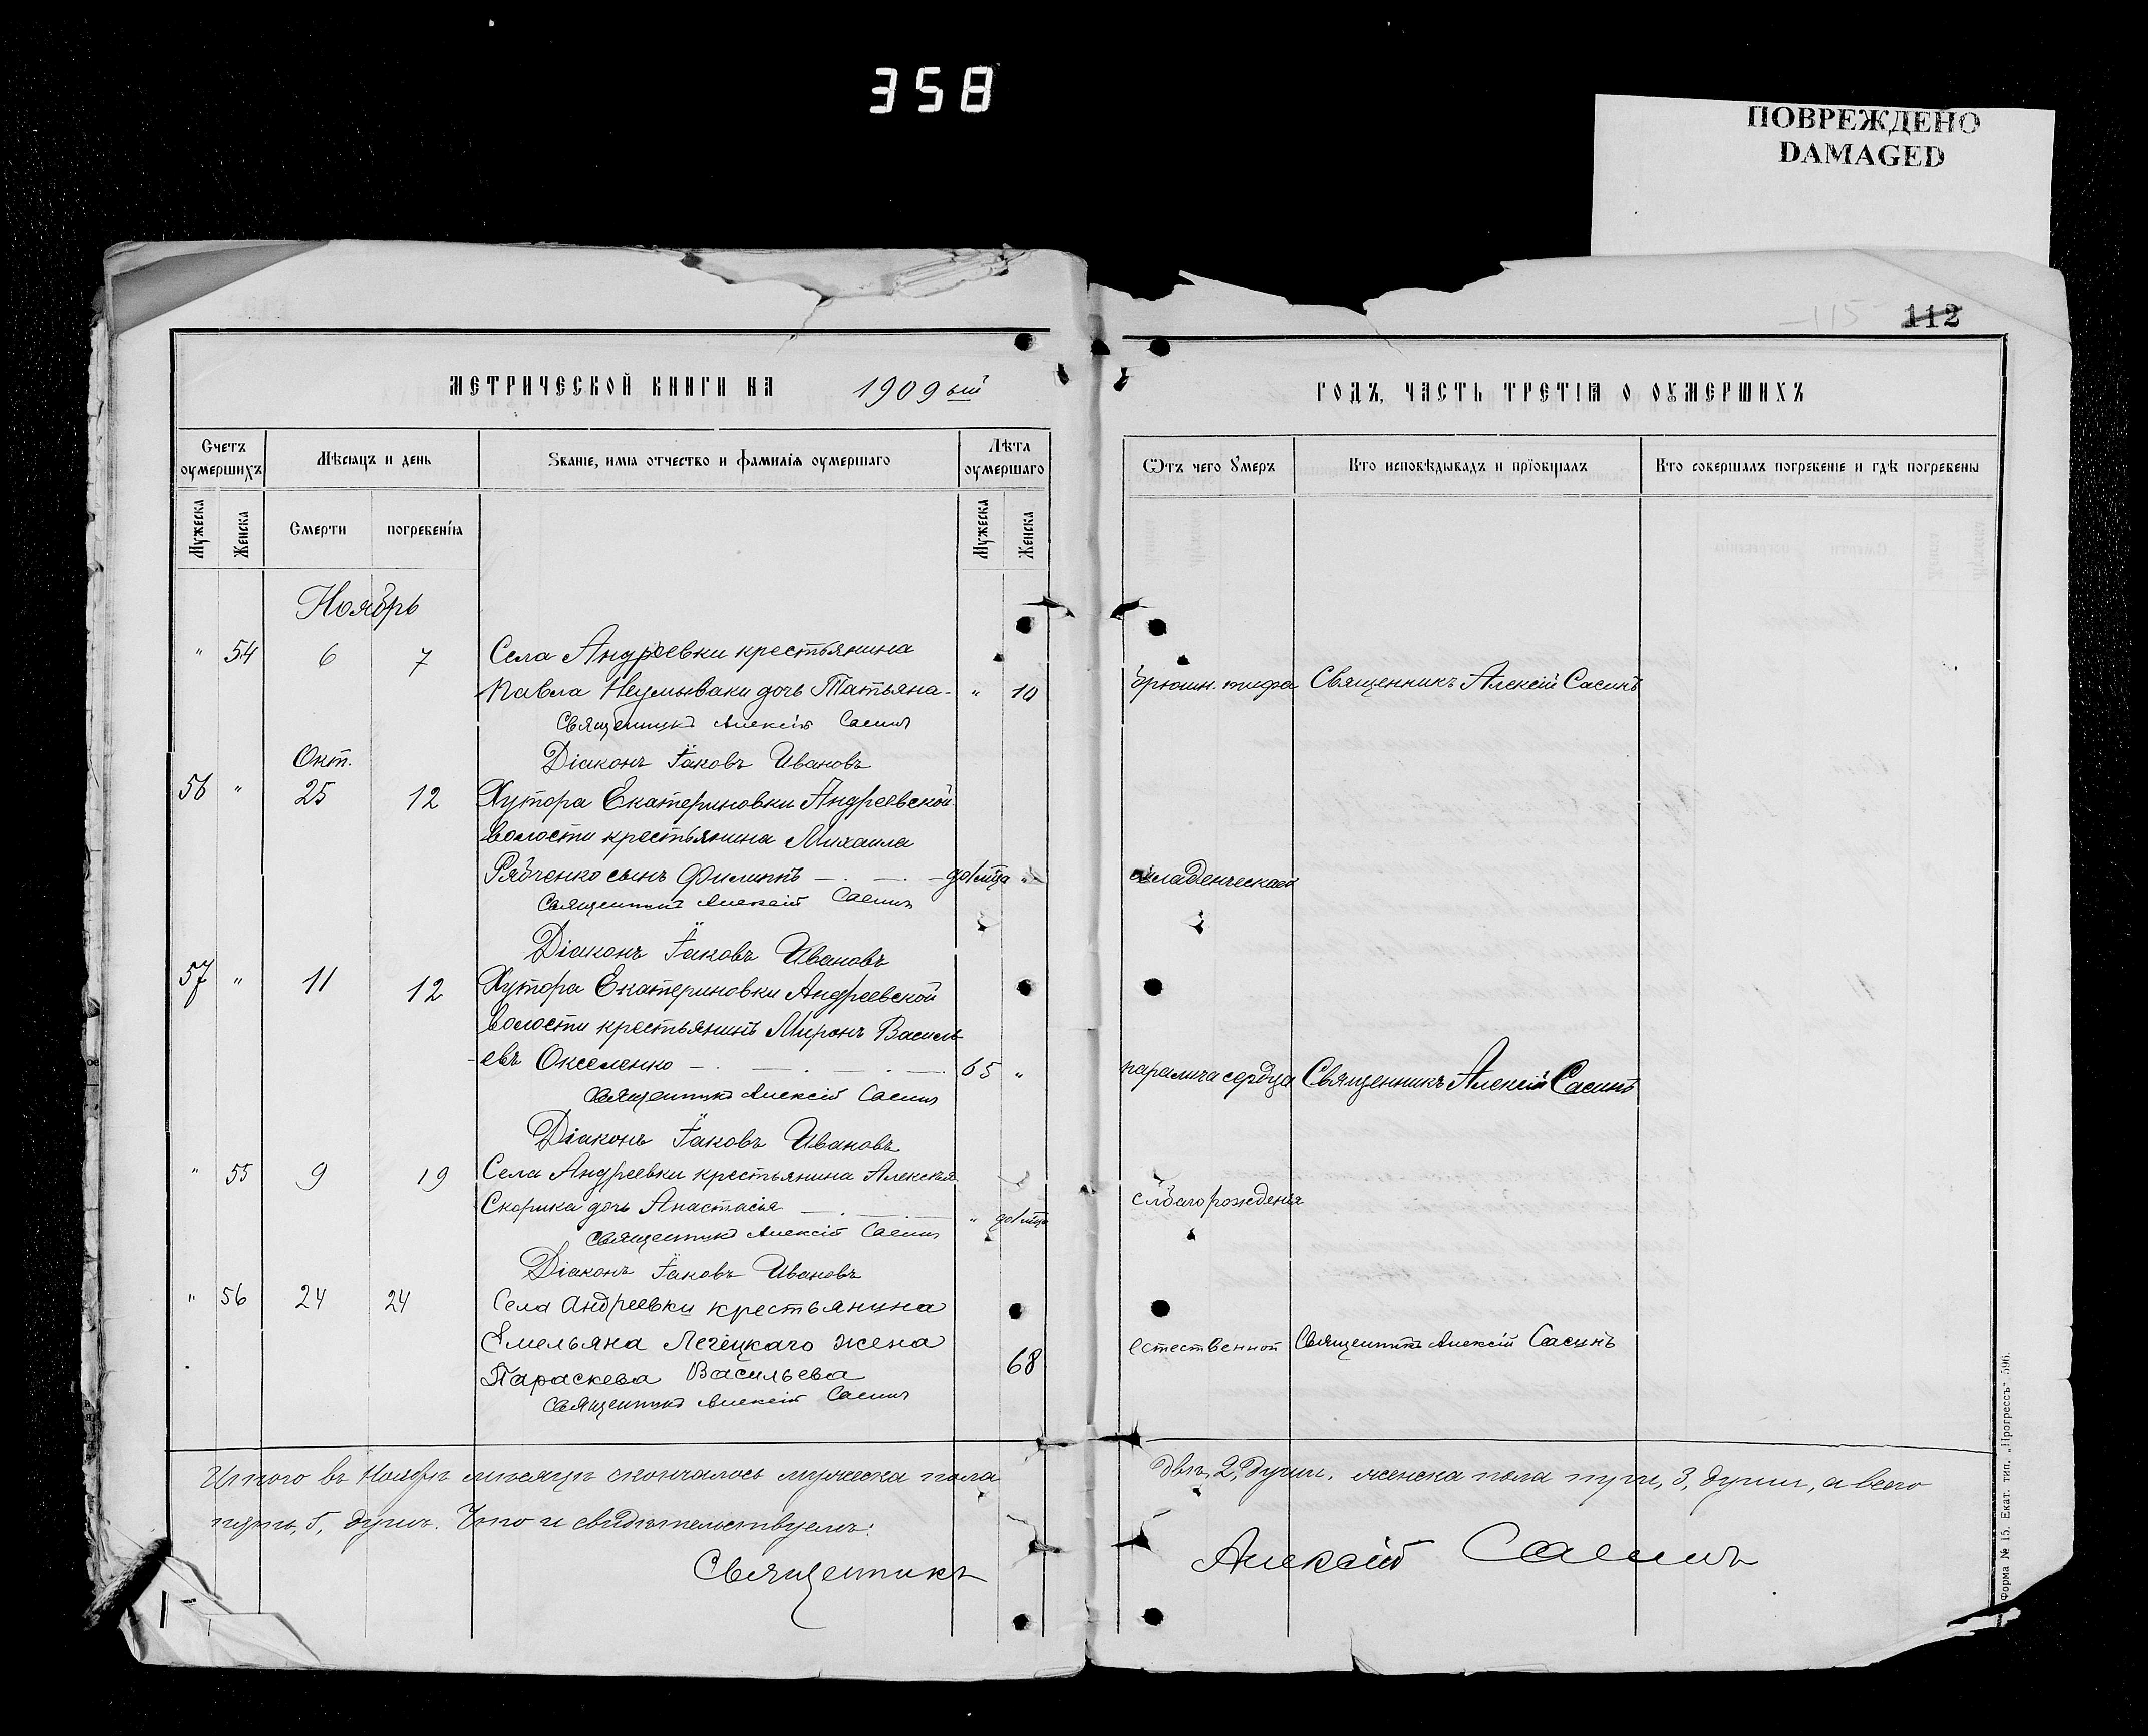 358
ПОВРЕЖДЕНО
DAMAGED
115
112
МЕТРИЧЕСКОЙ КНИГИ НА 1909 ый
ГОДЪ, ЧАСТЬ ТРЕТІЯ О ОУМЕРШИХЪ
Счетъ оумершихъ
Мѣсяцъ и день
Званіе, имя отчество и фамилія оумершаго
Лѣта оумершаго
Ѿтъ чего Умеръ
Кто исповѣдывадъ и прїобщалъ
Кто совершалъ погребеніе и гдѣ погребены
Мужеска
Женска
Смерти
погребенія
Мужеска
Женска
Ноябрь
" 54 6 7 Села Андреевки крестьянина
Павла Неумываки дочь Татьяна - " 10 брюшн. тифа Священникъ Алексій Сасинъ
Священникъ Алексій Сасинъ
Окт. Діаконъ Іаковъ Ивановъ
56 " 25 12 Хутора Екатериновки Андреевской
волости крестьянина Михаила
Рябченко сынъ Филиппъ — . — . — до1мца " младенческой
Священникъ Алексій Сасинъ
Діаконъ Іаковъ Ивановъ
57 " 11 12 Хутора Екатериновки Андреевской
волости крестьянинъ Миронъ Василь-
-евъ Окселенко — . — . — . — 65 " паралича сердца Священникъ Алексій Сасинъ
Священникъ Алексій Сасинъ
Діаконъ Іаковъ Ивановъ
" 55 9 19 Села Андреевки крестьянина Алексѣя
Скорика дочь Анастасія — . — . — " до1мца слабаго рожденія
Священникъ Алексій Сасинъ
Діаконъ Іаковъ Ивановъ
" 56 24 24 Села Андреевки крестьянина
Емельяна Легецкаго жена естественной Священникъ Алексій Сасинъ
Параскева Васильева 68
Священникъ Алексій Сасинъ
Итого въ Ноябрѣ мѣсяцѣ скончалось мужеска пола двѣ, 2, души, женска пола три, 3, души, а всего
пять, 5, душъ. Что и свидѣтельствуемъ:
Священникъ Алексій Сасинъ
Форма № 15. Екат. тип. „Прогрессъ" 596.